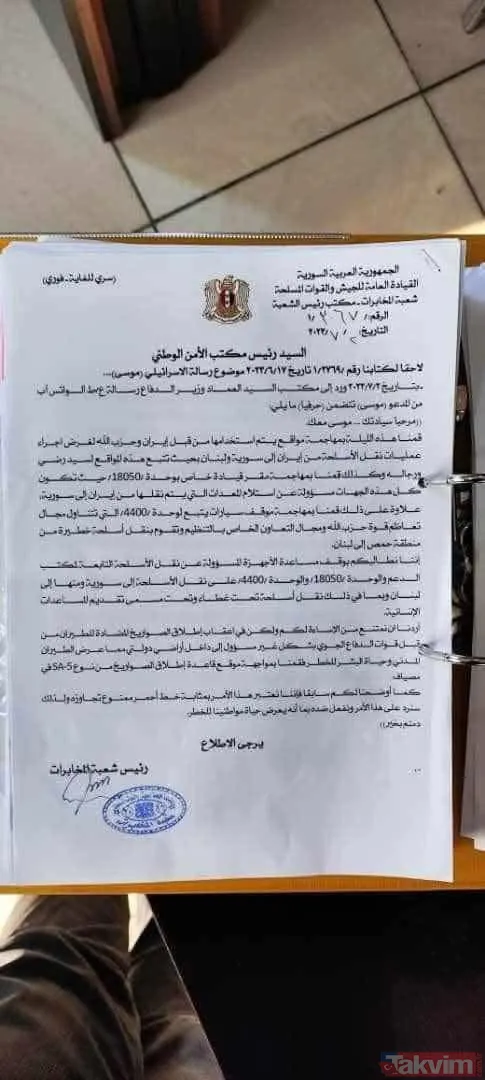 الجمهورية العربية السورية
القيادة العامة للجيش والقوات المسلحة
شعبة المخابرات - مكتب رئيس الشعبة
(سري للغاية - فوري)
الرقم/ ٣٦٧ /١
التاريخ: / ٧ / ٢٠٢٣
السيد رئيس مكتب الأمن الوطني
لاحقا لكتابنا رقم /١/٢٧٦٩ تاريخ ٢٠٢٣/٦/١٧ موضوع رسالة الاسرائيلي (موسى)....
ـ بتاريخ ٢٠٢٣/٧/٢ ورد إلى مكتب السيد العماد وزير الدفاع رسالة ع/ط الواتس آب
من المدعو (موسى) تتضمن (حرفيا) ما يلي:
((مرحبا سيادتك ... موسى معك.
قمنا هذه الليلة بمهاجمة مواقع يتم استخدامها من قبل إيران وحزب الله لغرض اجراء
عمليات نقل الأسلحة من إيران إلى سورية ولبنان بحيث تتبع هذه المواقع لسيد رضي
ورجاله وكذلك قمنا بمهاجمة مقر قيادة خاص بوحدة /18050/ حيث تكون
كل هذه الجهات مسؤولة عن استلام المعدات التي يتم نقلها من إيران إلى سورية،
علاوة على ذلك قمنا بمهاجمة موقف سيارات يتبع لوحدة /4400/ التي تتناول مجال
تعاظم قوة حزب الله ومجال التعاون الخاص بالتنظيم وتقوم بنقل أسلحة خطيرة من
منطقة حمص إلى لبنان.
إننا نطالبكم بوقف مساعدة الأجهزة المسؤولة عن نقل الأسلحة التابعة لكتب
الدعم والوحدة /18050/ والوحدة /4400/ على نقل الأسلحة إلى سورية ومنها إلى
لبنان وبما في ذلك نقل أسلحة تحت غطاء وتحت مسمى تقديم المساعدات
الإنسانية.
أردنا ان نمتنع عن الإساءة لكم ولكن في اعقاب إطلاق الصواريخ المضادة للطيران من
قبل قوات الدفاع الجوي بشكل غير مسؤول إلى داخل أراضي دولتي مما عرض الطيران
المدني وحياة البشر للخطر فقمنا بمواجهة موقع قاعدة إطلاق الصواريخ من نوع SA-5 في
مصياف.
كما أوضحنا لكم سابقا فإننا نعتبر هذا الأمر بمثابة خط أحمر ممنوع تجاوزه ولذلك
سنرد على هذا الأمر ونفعل ضده بما أنه يعرض حياة مواطنينا للخطر.
دمتم بخير))
يرجى الاطلاع
رئيس شعبة المخابرات
Takvim